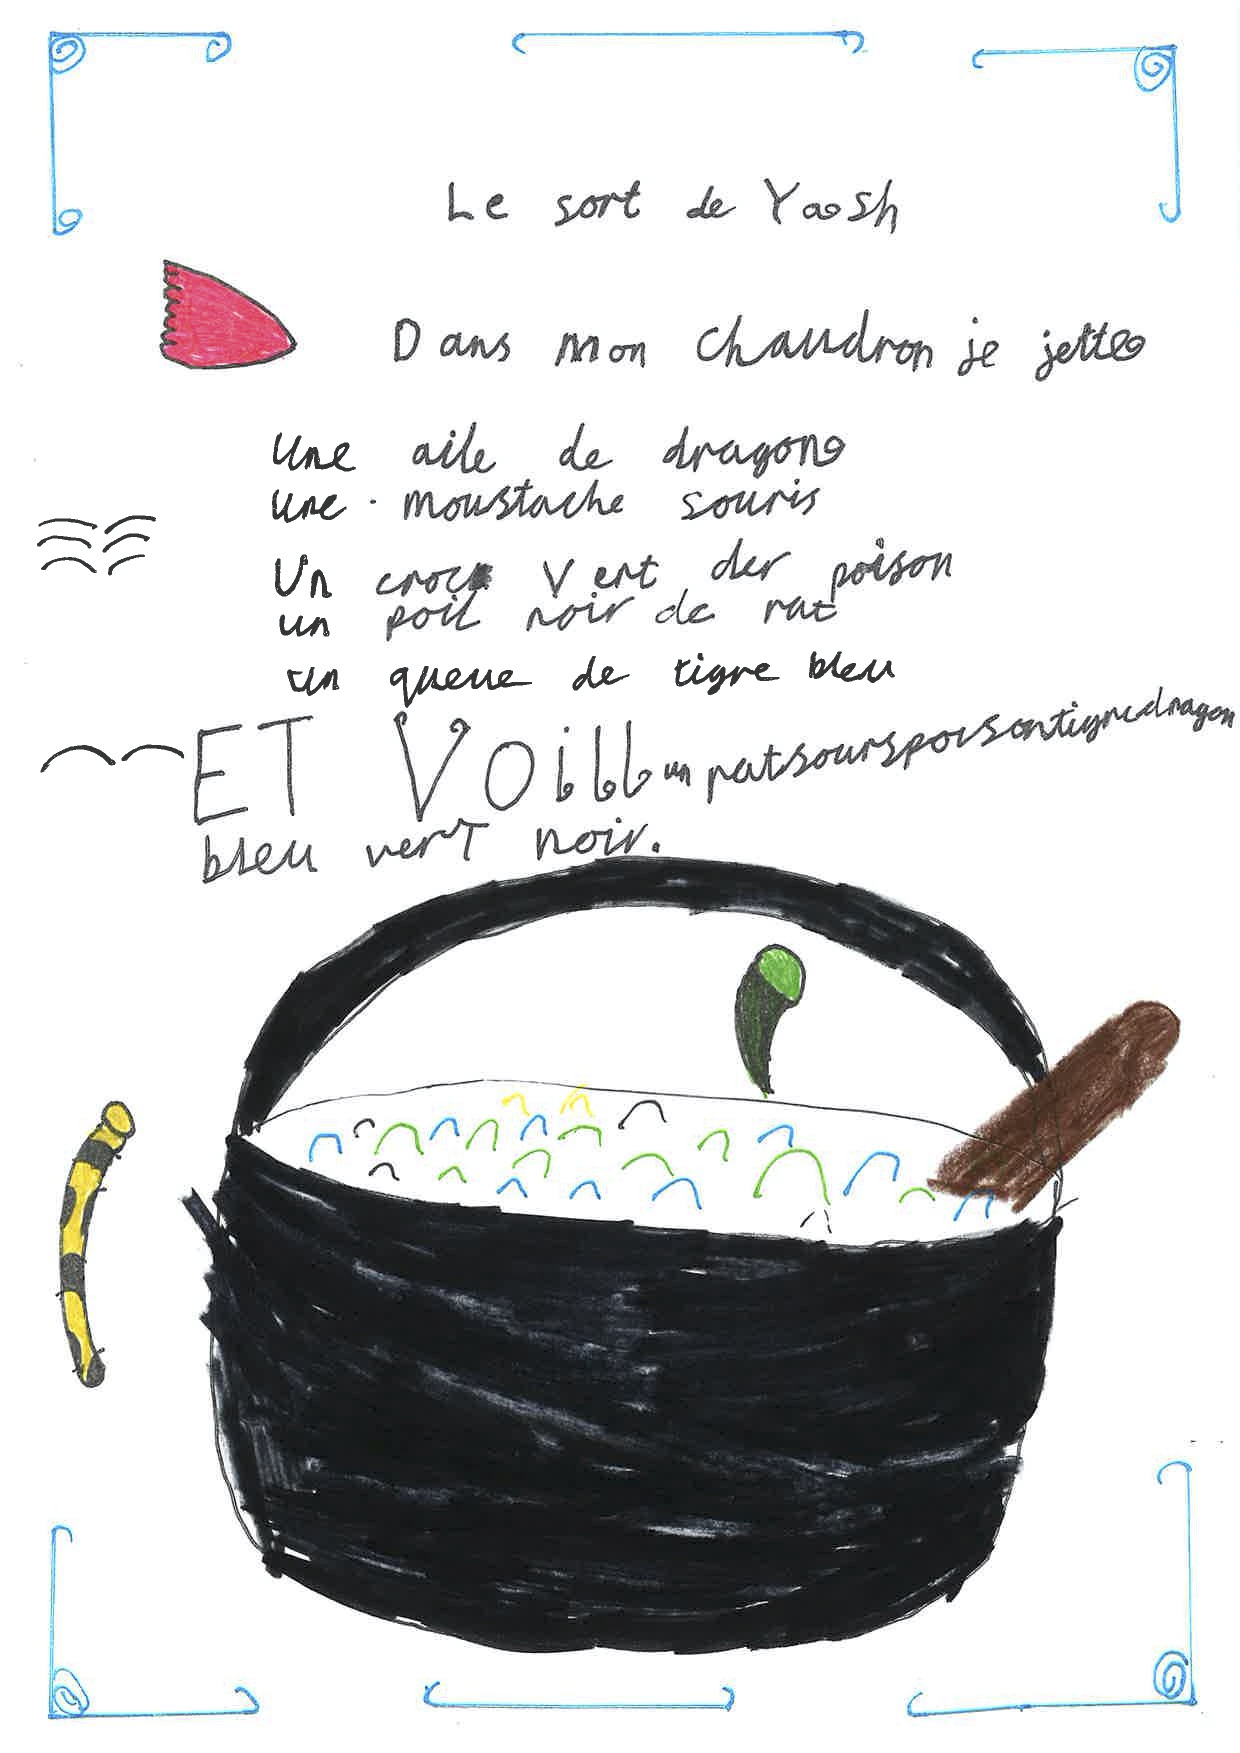 Le sort de Yoosh
Dans mon chaudron je jette
une aile de dragon
une moustache souris
Un croc vert der poison
un poil noir de rat
un queue de tigre bleu
ET Voill un ratsourspoisontigredragon
bleu verT noir.